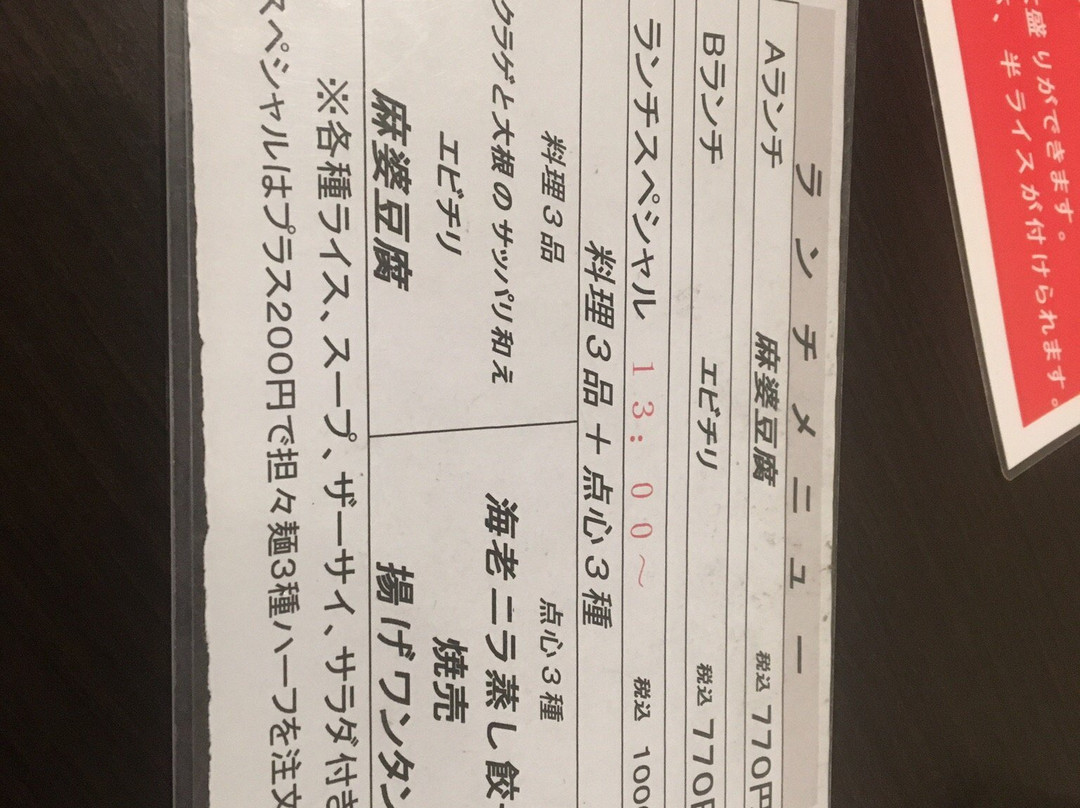 ランチメニュー
Aランチ 麻婆豆腐 税込 770円
Bランチ エビチリ 税込 770円
ランチスペシャル 13:00～ 税込 100
料理3品＋点心3種
料理3品
クラゲと大根のサッパリ和え
エビチリ
麻婆豆腐
点心3種
海老ニラ蒸し餃
焼売
揚げワンタン
※各種ライス、スープ、ザーサイ、サラダ付き
スペシャルはプラス200円で担々麺3種ハーフを注文
盛りができます。
半ライスが付けられます。